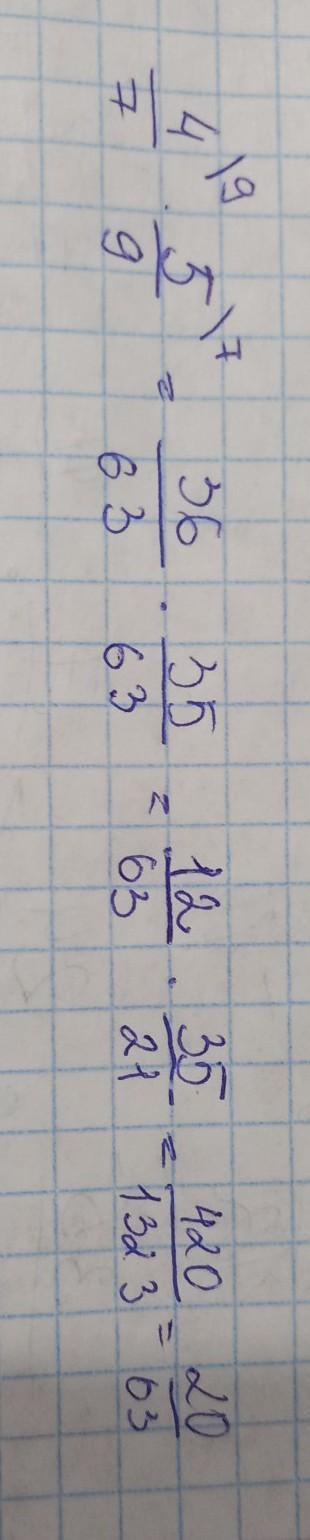 4\9/7 · 5\7/9 = 36/63 · 35/63 = 12/63 · 35/21 = 420/1323 = 20/63